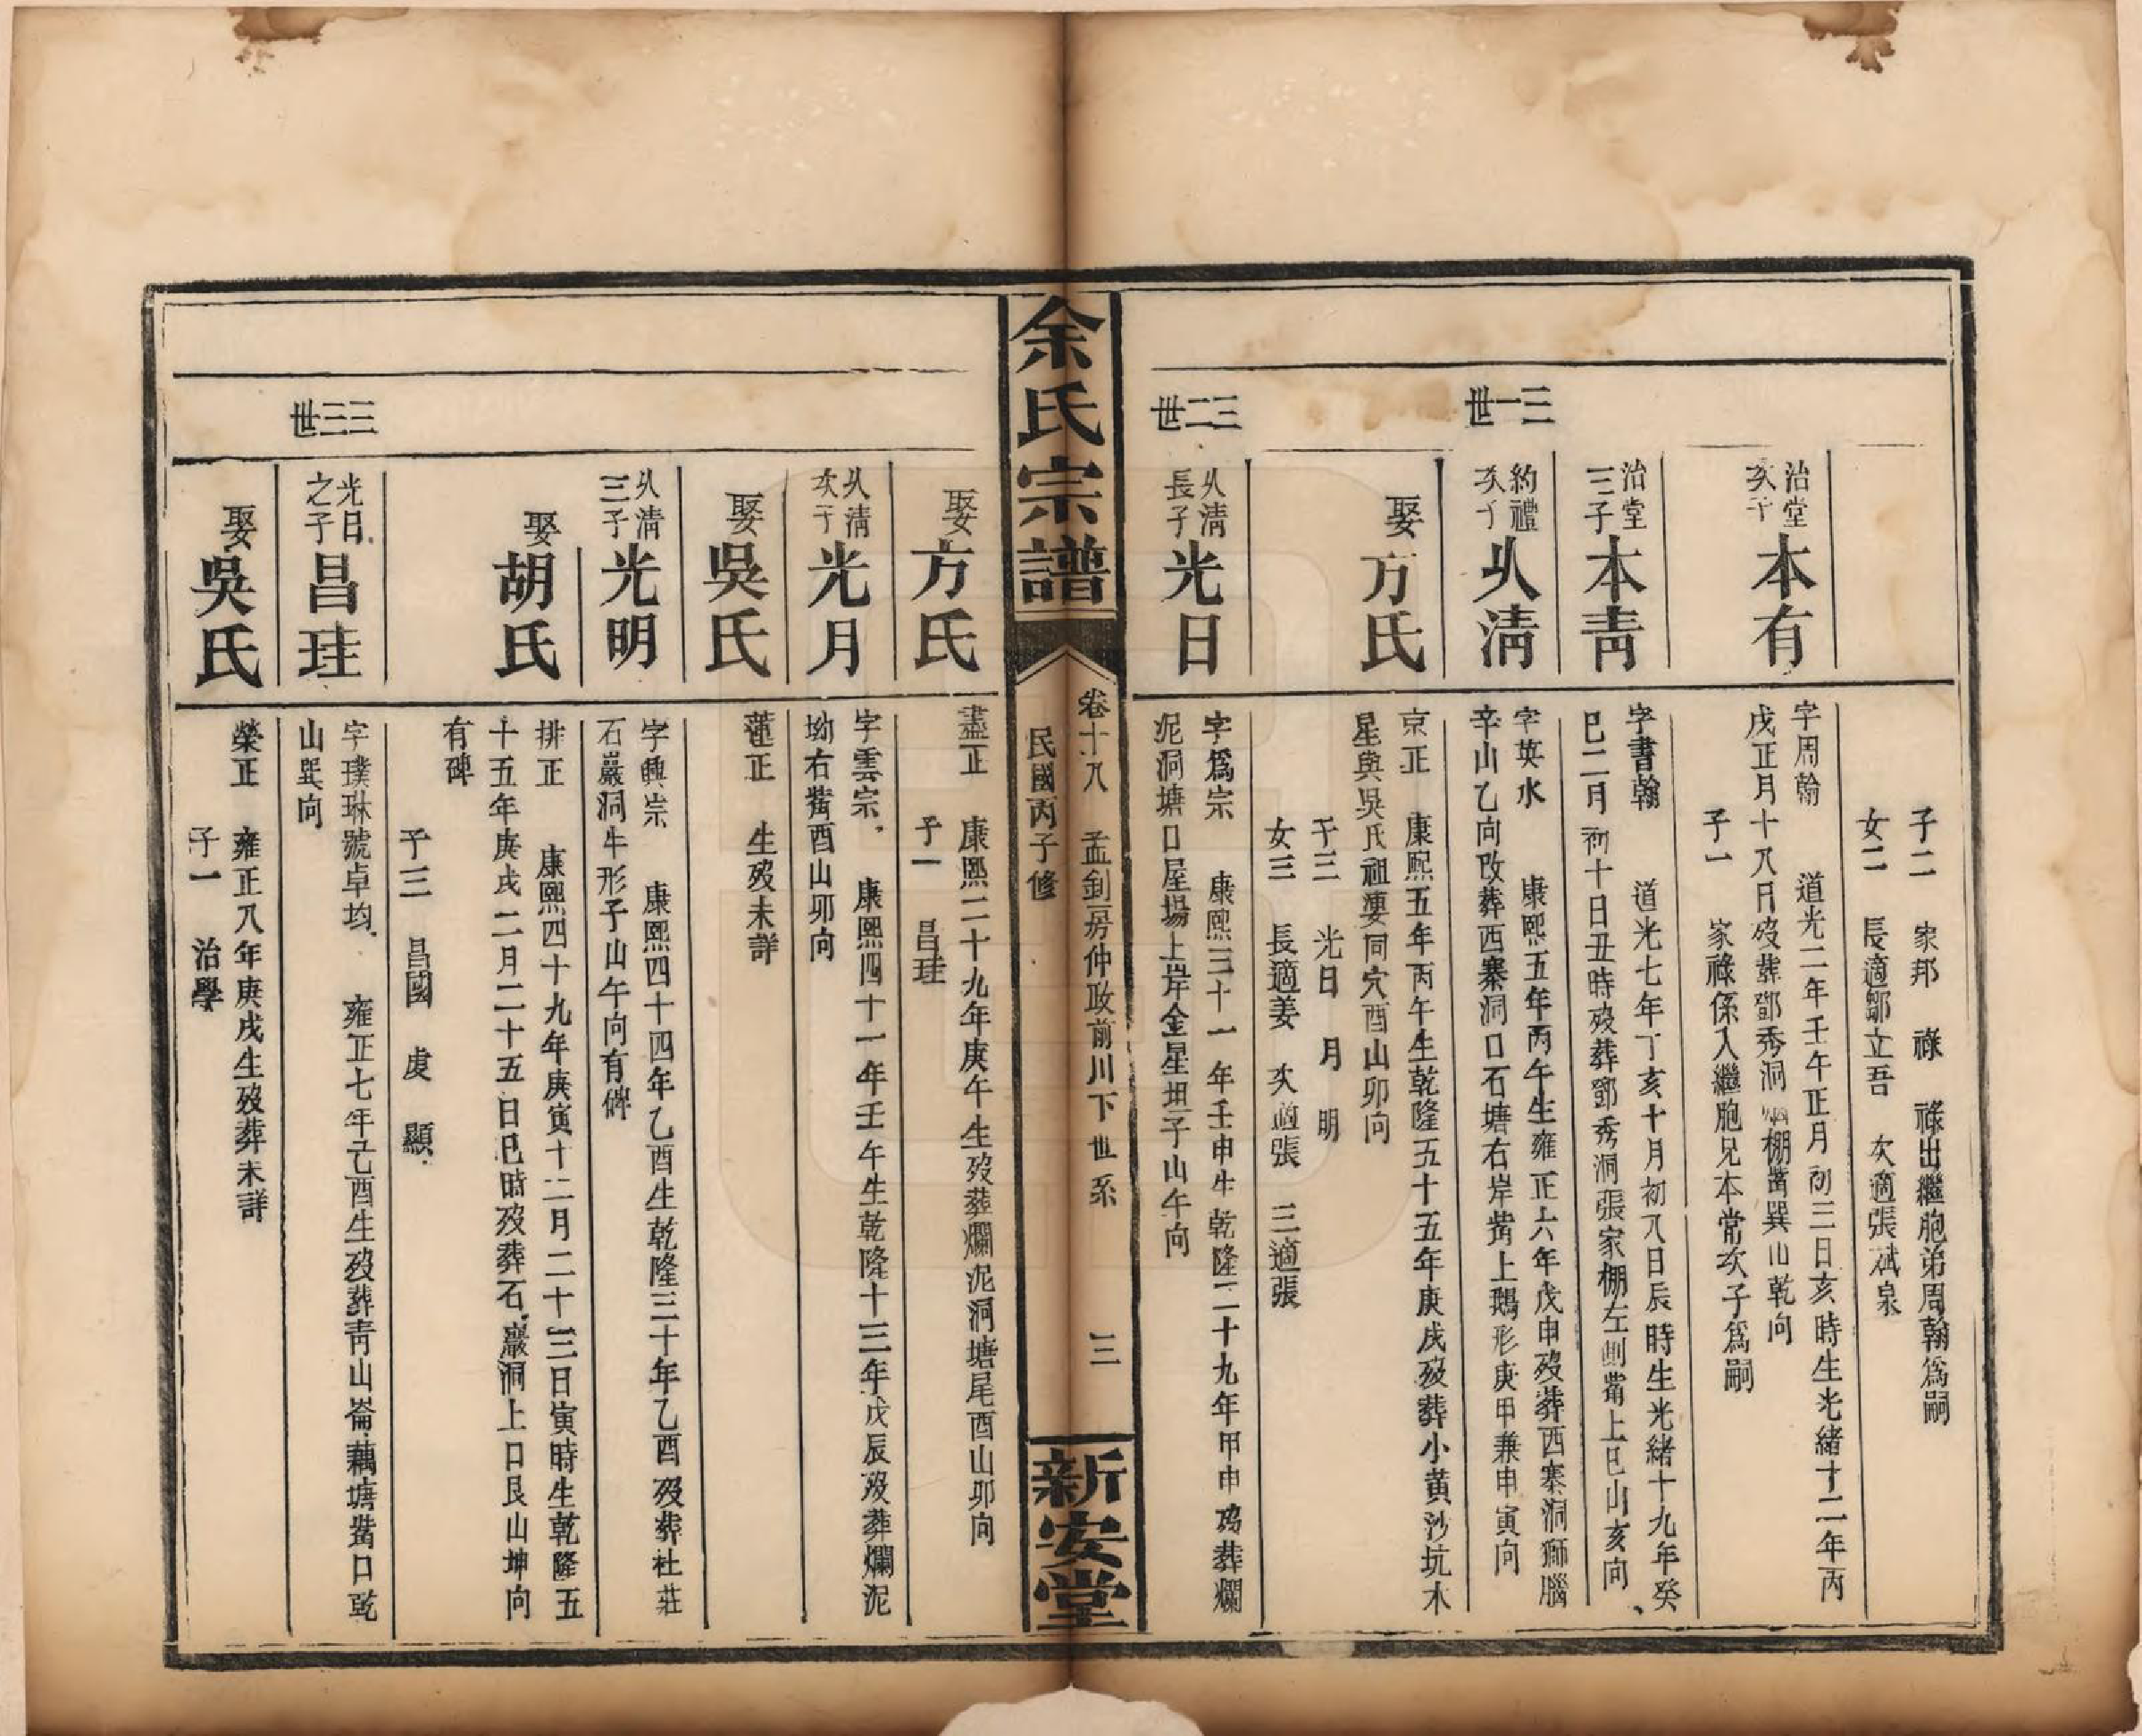 子二　家邦　祿　祿出繼胞弟周翰爲嗣
女二　長適鄒立吾　次適張斌泉
治堂
次子
本有
字周翰　道光二年壬午正月初三日亥時生光緒十二年丙
戌正月十八日歿葬鄧秀洞 棚嘴巽山乾向
子一　家祿係入繼胞兄本常次子爲嗣
治堂
三子
本青
字書翰　道光七年丁亥十月初八日辰時生光緒十九年癸
巳二月初十日丑時歿葬鄧秀洞張家棚左側嘴上巳山亥向
三一世
約禮
次子
从清
字英水　康熙五年丙午生雍正六年戊申歿葬西寨洞獅腦
辛山乙向改葬西寨洞口石塘右岸嘴上鵝形庚甲兼申寅向
娶
方氏
京正　康熙五年丙午生乾隆五十五年庚戌歿葬小黃沙坑木
星與吳氏祖 同穴酉山卯向
子三　光日　月　明
女三　長適姜　次適張　三適張
三二世
从清
長子
光日
字爲宗　康熙三十一年壬申生乾隆二十九年甲申歿葬爛
泥洞塘口屋場上岸金星坦子山午向
余氏宗譜
卷十八　孟釗房仲政前川下世系　三
民國丙子修
新安堂
娶
方氏
盡正　康熙二十九年庚午生歿葬爛泥洞塘尾酉山卯向
子一　昌珪
从清
次子
光月
字雲宗　康熙四十一年壬午生乾隆十三年戊辰歿葬爛泥
坳右嘴酉山卯向
娶
吳氏
蓮正　生歿未詳
从清
三子
光明
字興宗　康熙四十四年乙酉生乾隆三十年乙酉歿葬社莊
石巖洞牛形子山午向有碑
娶
胡氏
排正　康熙四十九年庚寅十二月二十三日寅時生乾隆五
十五年庚戌二月二十五日巳時歿葬石巖洞上口艮山坤向
有碑
子三　昌國　虔　顯
三三世
光日
之子
昌珪
字璞琳號卓均　雍正七年己酉生歿葬青山崙藕塘嘴口乾
山巽向
娶
吳氏
榮正　雍正八年庚戌生歿葬未詳
子一　治學